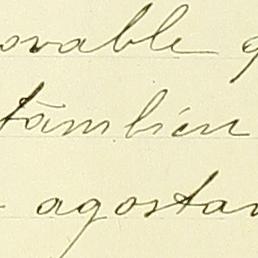 ovable
tāmbien
agostar